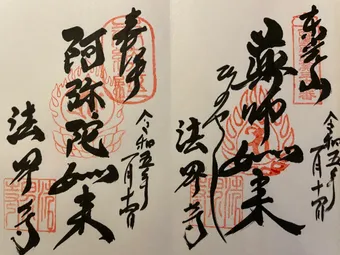 東光山
薬師如来
ひのやくし
令和五年
一月十四日
法界寺
奉拝
阿弥陀如来
令和五年
一月十四日
法界寺